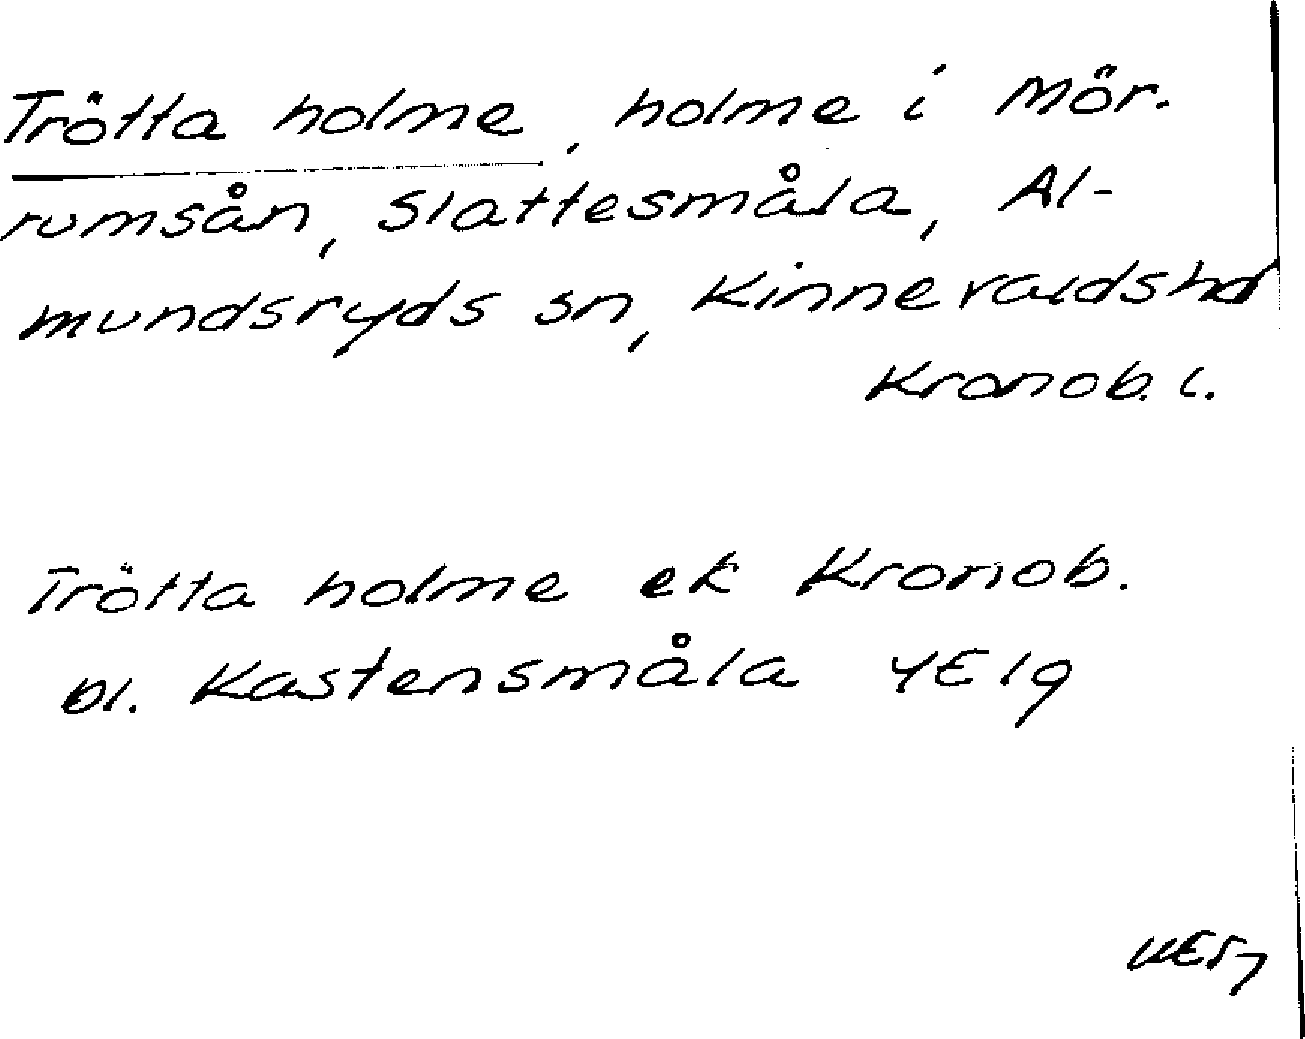 Trötta holme, holme i Mör-
rumsån, Slattesmåla, Al-
mundsryds sn, Kinnevaldshd
Kronob. l.
Trötta holme ek Kronob.
bl. Kastensmåla 4E1g